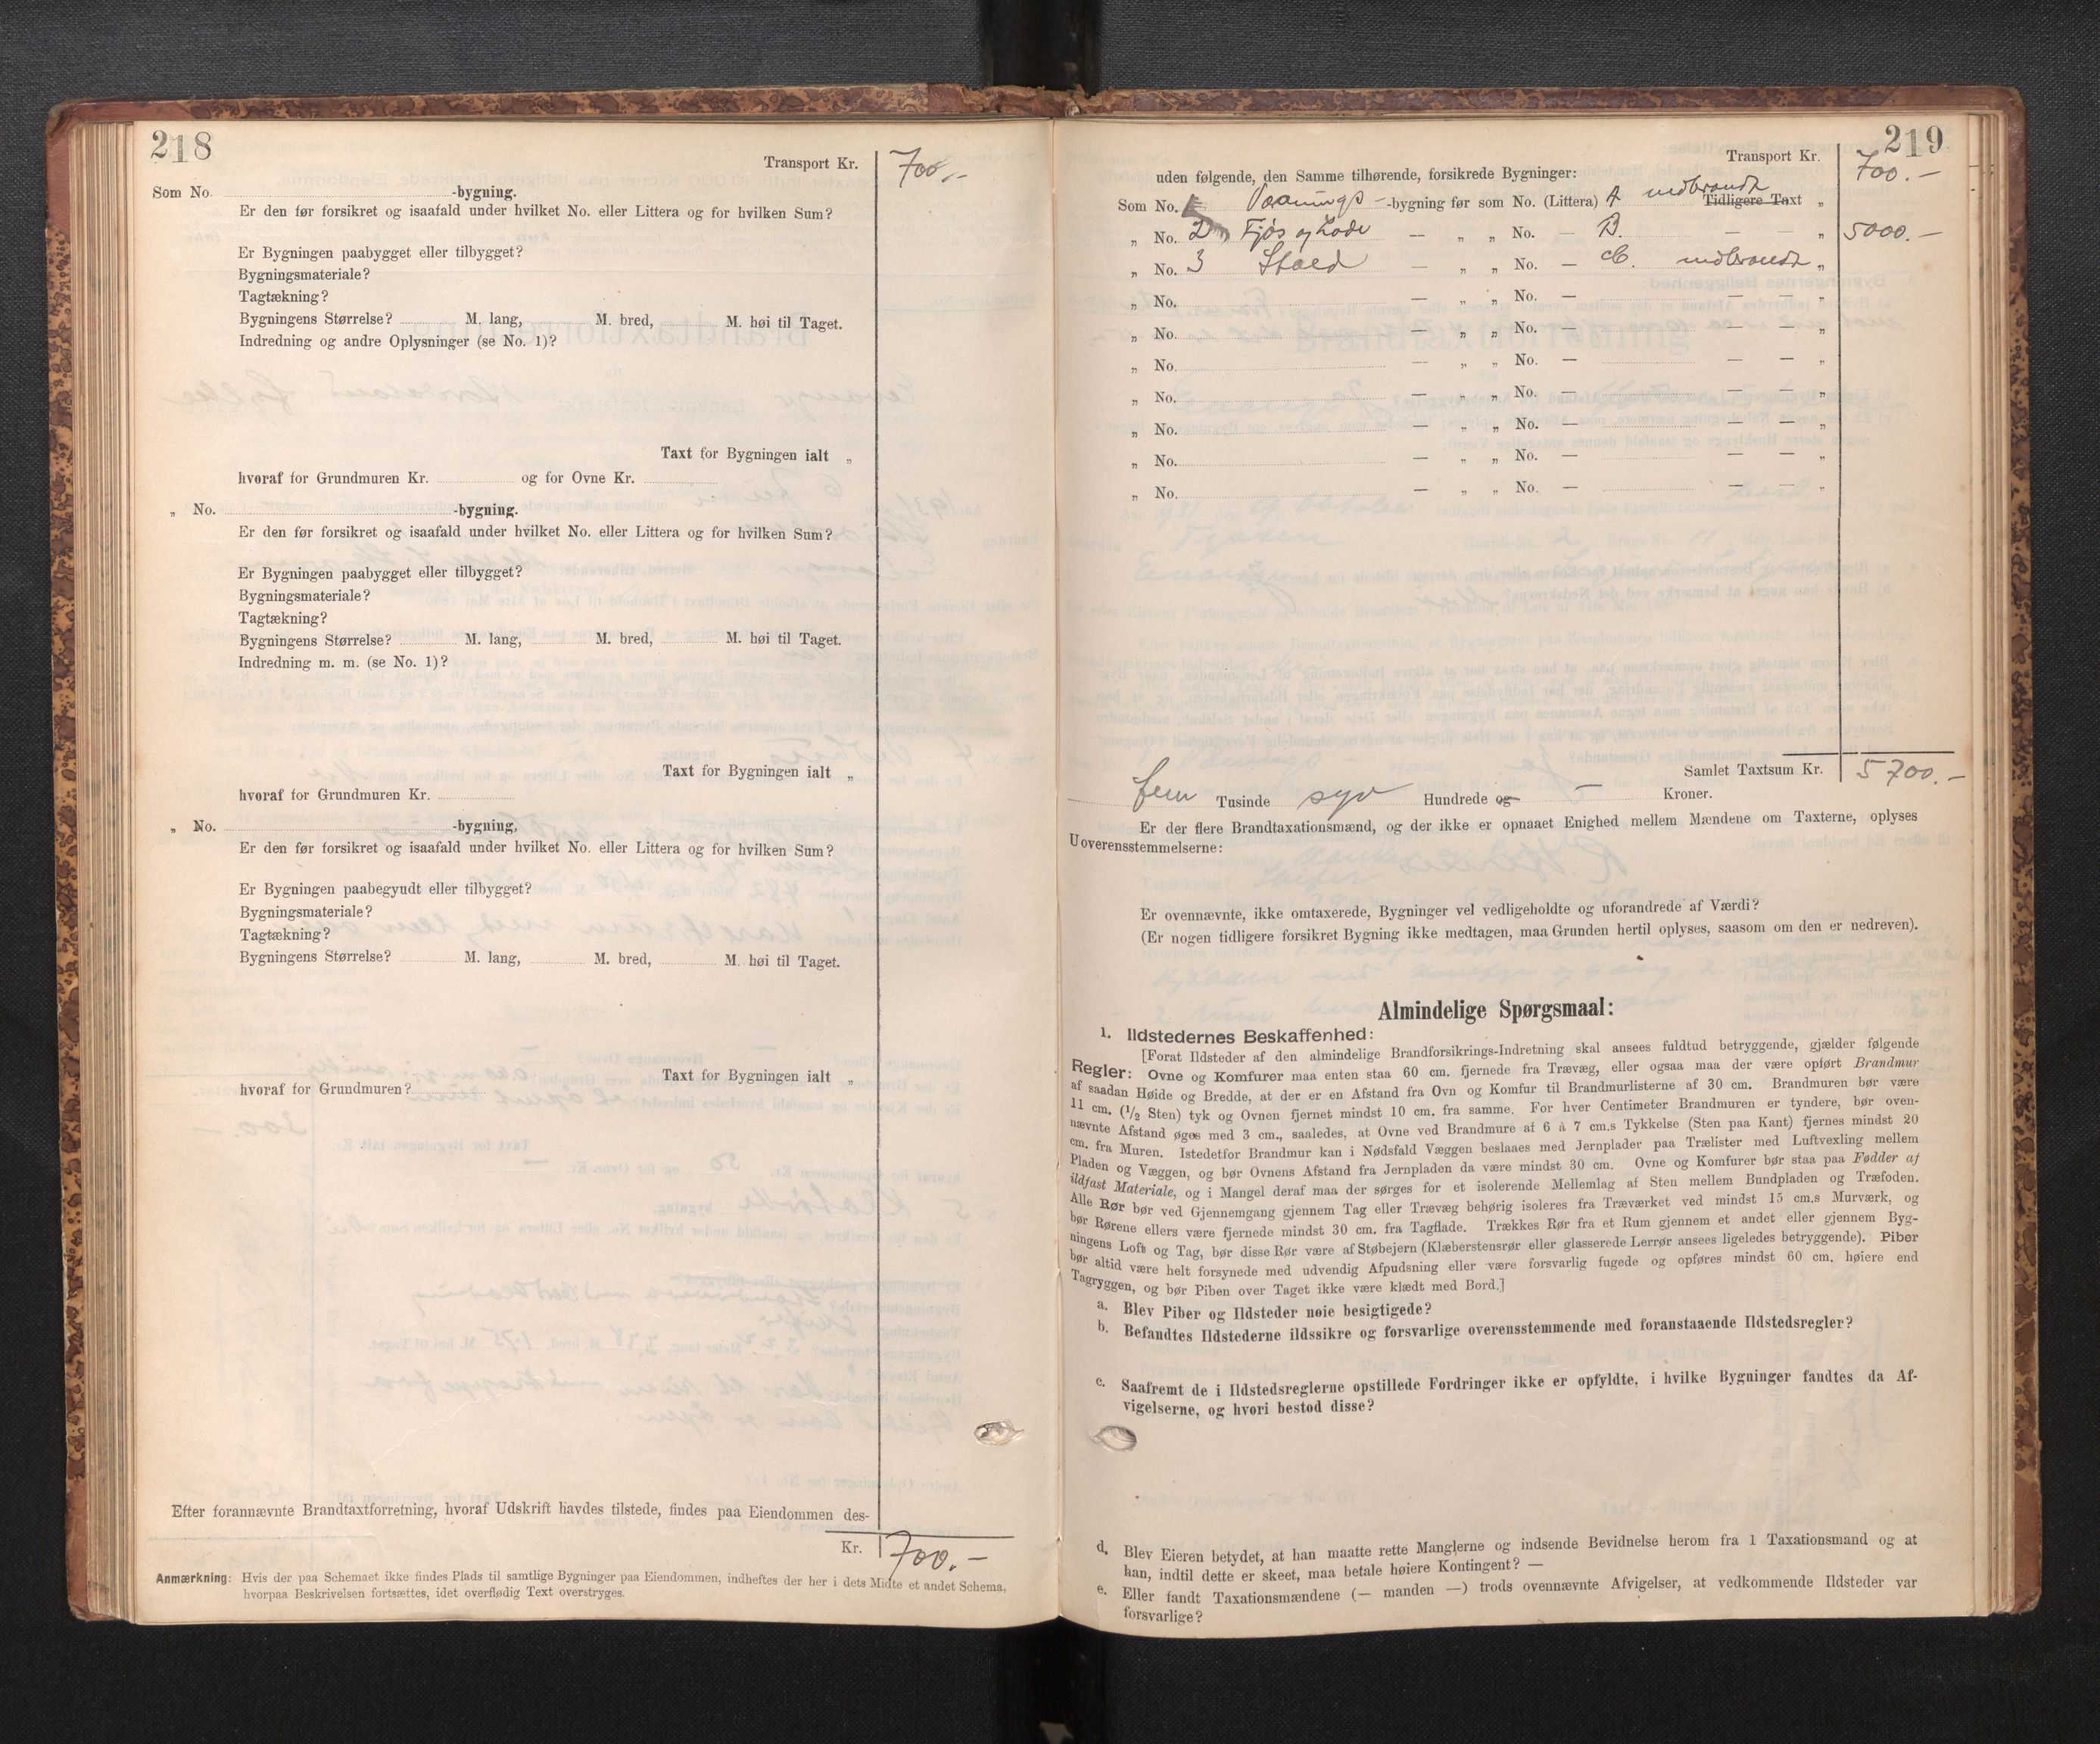 218
Transport Kr. 700.-
Som No. -bygning.
Er den før forsikret og isaafald under hvilket No. eller Littera og for hvilken Sum?
Er Bygningen paabygget eller tilbygget?
Bygningsmateriale?
Tagtækning?
Bygningens Størrelse? M. lang, M. bred, M. høi til Taget.
Indredning og andre Oplysninger (se No. 1)?
Taxt for Bygningen ialt „
hvoraf for Grundmuren Kr. og for Ovne Kr.
„ No. -bygning.
Er den før forsikret og isaafald under hvilket No. eller Littera og for hvilken Sum?
Er Bygningen paabygget eller tilbygget?
Bygningsmateriale?
Tagtækning?
Bygningens Størrelse? M. lang, M. bred, M. høi til Taget.
Indredning m. m. (se No. 1)?
Taxt for Bygningen ialt „
hvoraf for Grundmuren Kr.
„ No. -bygning,
Er den før forsikret og isaafald under hvilket No. eller Littera og for hvilken Sum?
Er Bygningen paabegyudt eller tilbygget?
Bygningsmateriale?
Tagtækning?
Bygningens Størrelse? M. lang, M. bred, M. høi til Taget.
Taxt for Bygningen ialt „
hvoraf for Grundmuren?
Efter forannævnte Brandtaxtforretning, hvoraf Udskrift havdes tilstede, findes paa Eiendommen des-
Kr. 700.-
Anmærkning: Hvis der paa Schemaet ikke findes Plads til samtlige Bygninger paa Eiendommen, indheftes der her i dets Midte et andet Schema,
hvorpaa Beskrivelsen fortsættes, idet overflødig Text overstryges.
219
Transport Kr. 700.-
uden følgende, den Samme tilhørende, forsikrede Bygninger:
Som No. Vaanings- -bygning før som No. (Littera) A nedbrændt Tidligere Taxt „
„ No. 2 Fjøs og Lade — „ „ No. — B. — — „ 5000.-
„ No. 3 Stald — „ „ No. — nedbrændt „
„ No. — „ „ No. — — — „
„ No. — „ „ No. — — — „
„ No. — „ „ No. — — — „
„ No. — „ „ No. — — — „
„ No. — „ „ No. — — — „
„ No. — „ „ No. — — — „
„ No. — „ „ No. — — — „
Samlet Taxtsum Kr. 5700.-
fem Tusinde syv Hundrede og - Kroner.
Er der flere Brandtaxationsmænd, og der ikke er opnaaet Enighed mellem Mændene om Taxterne, oplyses
Uoverensstemmelserne:
Er ovennævnte, ikke omtaxerede, Bygninger vel vedligeholdte og uforandrede af Værdi?
(Er nogen tidligere forsikret Bygning ikke medtagen, maa Grunden hertil oplyses, saasom om den er nedreven).
Almindelige Spørgsmaal:
1. Ildstedernes Beskaffenhed:
[Forat Ildsteder af den almindelige Brandforsikrings-Indretning skal ansees fuldtud betryggende, gjælder følgende
Regler: Ovne og Komfurer maa enten staa 60 cm. fjernede fra Trævæg, eller ogsaa maa der være opført Brandmur
af saadan Høide og Bredde, at der er en Afstand fra Ovn og Komfur til Brandmurlisterne af 30 cm. Brandmuren bør være
11 cm. (1/2 Sten) tyk og Ovnen fjernet mindst 10 cm. fra samme. For hver Centimeter Brandmuren er tyndere, bør oven-
nævnte Afstand øges med 3 cm., saaledes, at Ovne ved Brandmure af 6 à 7 cm.s Tykkelse (Sten paa Kant) fjernes mindst 20
cm. fra Muren. Istedetfor Brandmur kan i Nødsfald Væggen beslaaes med Jernplader paa Trælister med Luftvexling mellem
Pladen og Væggen, og bør Ovnens Afstand fra Jernpladen da være mindst 30 cm. Ovne og Komfurer bør staa paa Fødder af
ildfast Materiale, og i Mangel deraf maa der sørges for et isolerende Mellemlag af Sten mellem Bundpladen og Træfoden.
Alle Rør bør ved Gjennemgang gjennem Tag eller Trævæg behørig isoleres fra Træværket ved mindst 15 cm.s Murværk, og
bør Rørene ellers være fjernede mindst 30 cm. fra Tagflade. Trækkes Rør fra et Rum gjennem et andet eller gjennem Byg-
ningens Loft og Tag, bør disse Rør være af Støbejern (Klæberstensrør eller glasserede Lerrør ansees ligeledes betryggende). Piber
bør altid være helt forsynede med udvendig Afpudsning eller være forsvarlig fugede og opføres mindst 60 cm. høiere end
Tagryggen, og bør Piben over Taget ikke være klædt med Bord.]
a. Blev Piber og Ildsteder nøie besigtigede?
b. Befandtes Ildstederne ildssikre og forsvarlige overensstemmende med foranstaaende Ildstedsregler?
c. Saafremt de i Ildstedsreglerne opstillede Fordringer ikke er opfyldte, i hvilke Bygninger fandtes da Af-
vigelserne, og hvori bestod disse?
d. Blev Eieren betydet, at han maatte rette Manglerne og indsende Bevidnelse herom fra 1 Taxationsmand og at
han, indtil dette er skeet, maa betale høiere Kontingent? —
e. Eller fandt Taxationsmændene (— manden —) trods ovennævnte Afvigelser, at vedkommende Ildsteder var
forsvarlige?